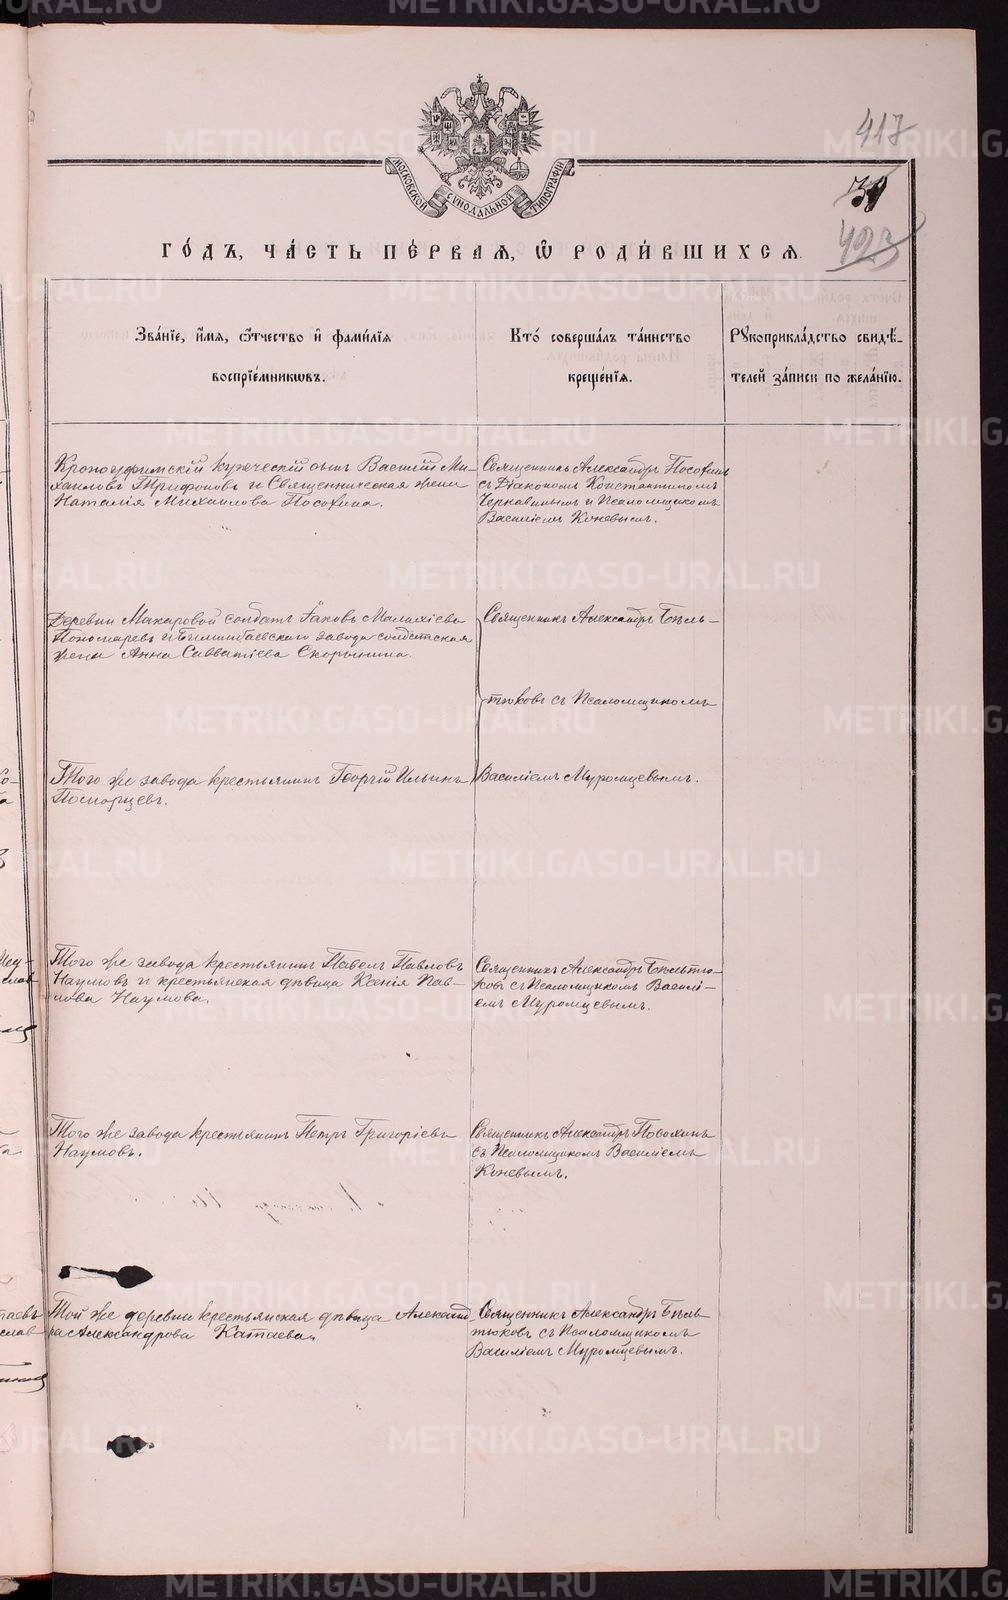 METRIKI.GASO-URAL.RU
417
МОСКОВСКОЙ СѴНОДАЛЬНОЙ ТИПОГРАФІИ
31
423
ГО́ДЪ, ЧА́СТЬ ПЕ́РВАѦ, Ѽ РОДИ́ВШИХСѦ.
Зва́нїе, и҆́мѧ, ѻ҆́тчество и҆ фами́лїѧ
воспрїе́мникѡвъ.
Кто̀ соверша́лъ та́инство
креще́нїѧ.
Рꙋкоприкла́дство свидѣ́-
телей за́писи по жела́нїю.
Красноуфимскій купеческій сынъ Василій Ми-
хаиловъ Трифоновъ и Священническая жена
Наталія Михаилова Посохина.
Священникъ Александръ Посохинъ
съ Діакономъ Константиномъ
Чернавинымъ и Псаломщикомъ
Василіемъ Коневымъ.
Деревни Макаровой солдатъ Іаковъ Малахіевъ
Пономаревъ и Билимбаевскаго завода солдатская
жена Анна Савватіева Скорынина.
Священникъ Александръ Бѣль-
тюковъ съ Псаломщикомъ
Того же завода крестьянинъ Георгій Ильинъ
Поморцевъ.
Василіемъ Муромцевымъ.
Того же завода крестьянинъ Павелъ Павловъ
Наумовъ и крестьянская дѣвица Ксенія Пав-
лова Наумова.
Священникъ Александръ Бѣльтю-
ковъ съ Псаломщикомъ Василі-
емъ Муромцевымъ.
Того же завода крестьянинъ Петръ Григоріевъ
Наумовъ.
Священникъ Александръ Посохинъ
съ Псаломщикомъ Василіемъ
Коневымъ.
Той же деревни крестьянская дѣвица Александ-
ра Александрова Катаева.
Священникъ Александръ Бѣль-
тюковъ съ Псаломщикомъ
Василіемъ Муромцевымъ.